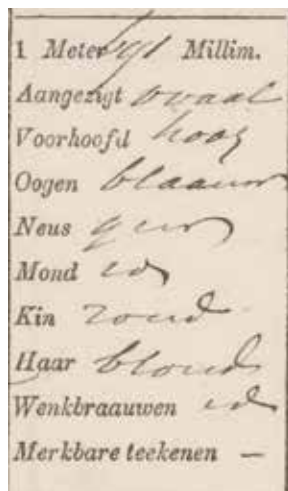 1 Meter Millim.
Aangezigt ovaal
Voorhoofd hoog
Oogen blaauw
Neus gew
Mond id
Kin rond
Haar blond
Wenkbraauwen id
Merkbare teekenen —